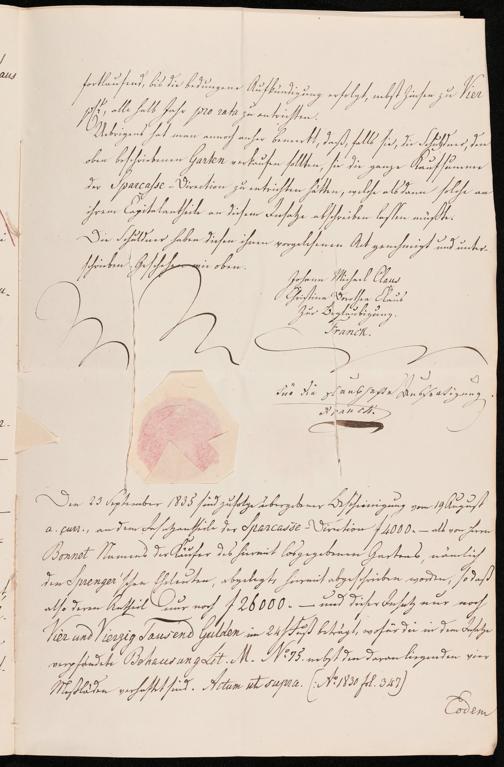 fortlaufend, bis die bedungene Aufkündigung erfolgt, nebst Zinsen zu Vier
pCt, alle halb Jahr pro rata zu entrichten.
Uebrigens hat man annoch anher bemerkt, daß, falls sie, die Schuldner, den
oben beschriebenen Garten verkaufen sollten, sie die ganze Kaufsumme
der Sparcasse-Direction zu entrichten hätten, welche alsdann solche an
ihrem Capitalantheile an diesem Insatze abschreiben lassen müßte.
Die Schuldner haben diesen ihnen vorgelesenen Act genehmigt und unter-
schrieben. Geschehen wie oben.
Johann Michael Claus
Christina Dorothea Claus
Zur Beglaubigung.
Franck.
Für die glaubhafte Ausfertigung
Franck.
Den 23 September 1835 sind zufolge übergebener Bescheinigung vom 19 August
a. curr., an dem Insatzantheile der Sparcasse-Direction f 4000.- als von Herrn
Bonnet Namens der Käufer des hiermit losgegebenen Gartens, nämlich
den Sprenger'schen Eheleuten, abgelegte hiermit abgeschrieben worden, sodaß
also deren Antheil nur noch f 26000.- und dieser Insatz nur noch
Vier und Vierzig Tausend Gulden im 24 f Fuß beträgt, wofür die in dem Insatze
verpfändete Behausung Lit. M. No 75. nebst den daran liegenden vier
Meßläden verhaftet sind. Actum ut supra. (: No 1830 fol. 347)
Eodem